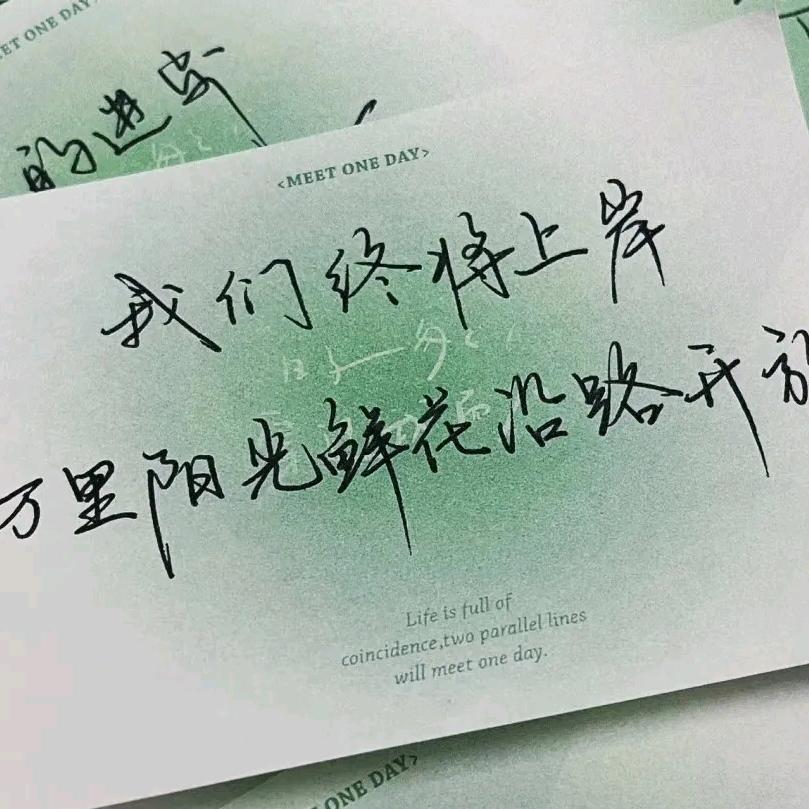 ET ONE DAY
的进步
<MEET ONE DAY>
我们终将上岸
万里阳光鲜花沿路开放
Life is full of
coincidence,two parallel lines
will meet one day.
ONE DAY>